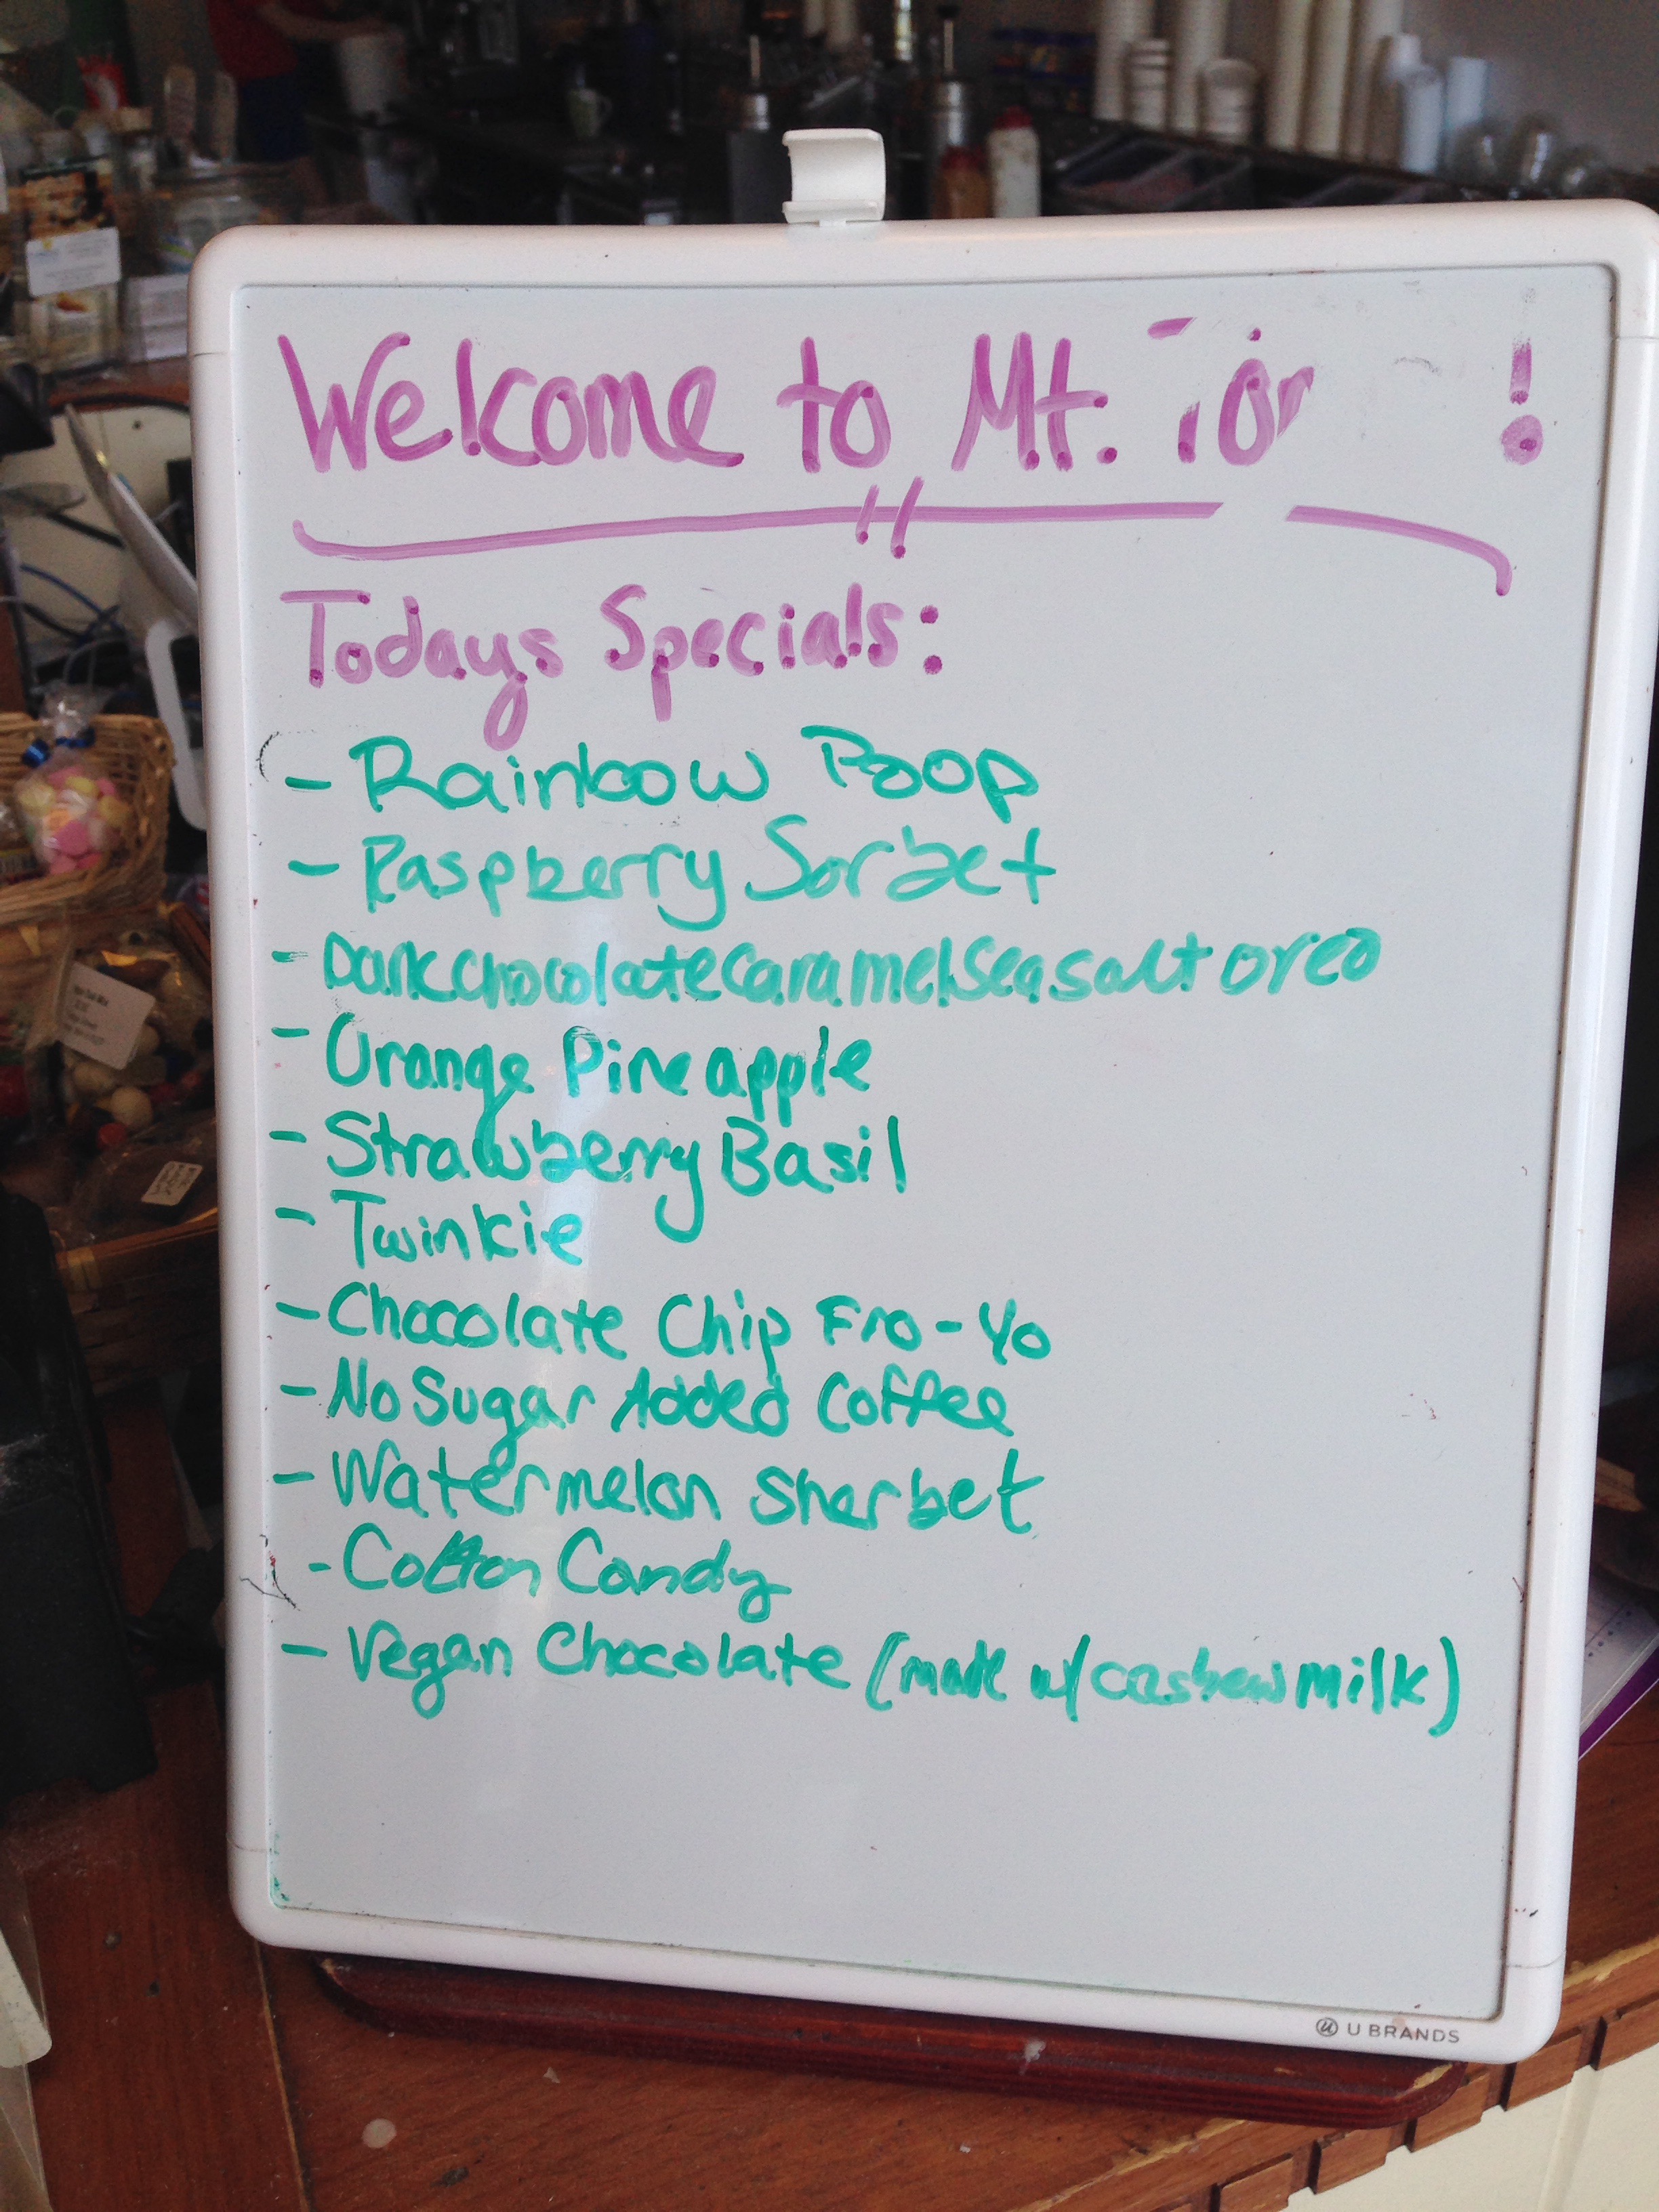 Welcome to Mt. Tom !
Todays Specials:
- Rainbow Poop
- Raspberry Sorbet
- Dark chocolate caramel sea salt oreo
- Orange Pineapple
- Strawberry Basil
- Twinkie
- Chocolate Chip Fro-Yo
- No Sugar Added Coffee
- Watermelon Sherbet
- Cotton Candy
- Vegan Chocolate (made w/ cashew milk)
U BRANDS